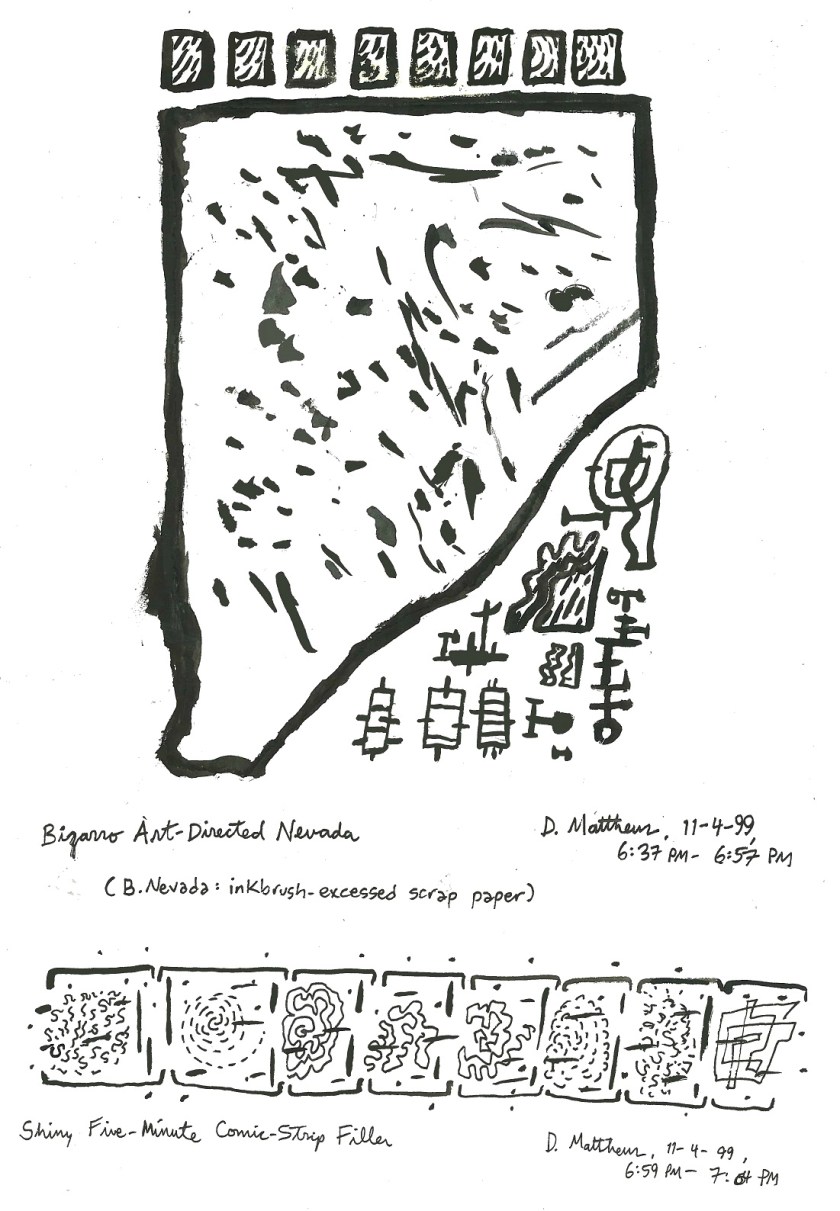 Bizarro Art-Directed Nevada
D. Matthews, 11-4-99,
6:37 PM- 6:57 PM
(B.Nevada: inkbrush-excessed scrap paper)
Shiny Five-Minute Comic-Strip Filler
D. Matthews, 11-4-99,
6:59 PM- 7:04 PM